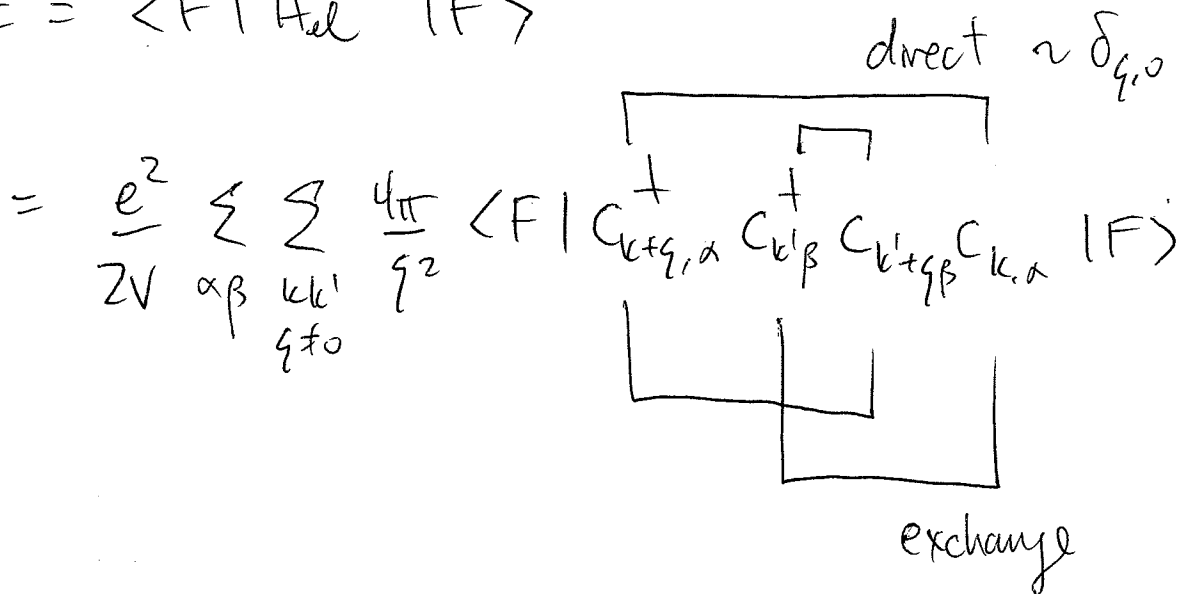 = <F| Hel |F>
direct ~ δq,0
= e²/2V Σαβ Σkk' q≠0 4π/q² <F| C†k+q,α C†k'β Ck'+qβ Ck,α |F>
exchange